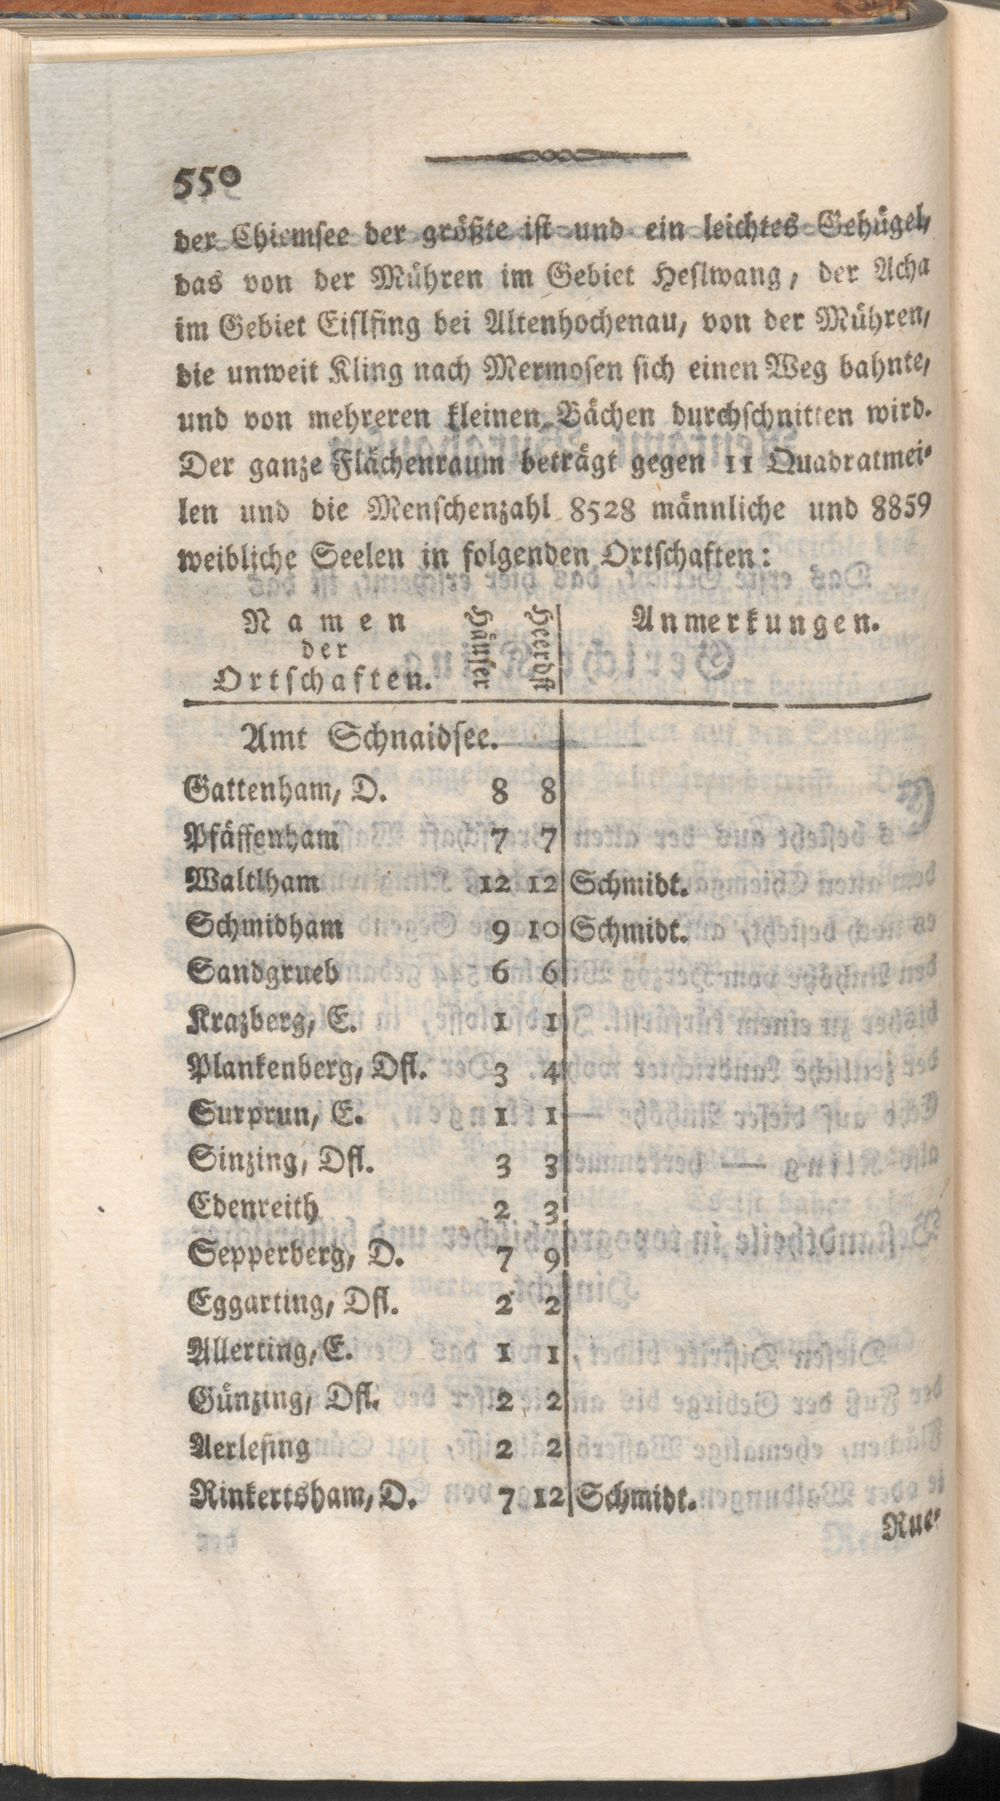 550
der Chiemsee der größte ist und ein leichtes Gehügel,
das von der Mühren im Gebiet Heslwang, der Acha
im Gebiet Eislfing bei Altenhochenau, von der Mühren,
die unweit Kling nach Mermosen sich einen Weg bahnte,
und von mehreren kleinen Bächen durchschnitten wird.
Der ganze Flächenraum beträgt gegen 11 Quadratmei-
len und die Menschenzahl 8528 männliche und 8859
weibliche Seelen in folgenden Ortschaften:
Namen der Ortschaften. Häuser Heerdst Anmerkungen.
Amt Schnaidsee.
Gattenham, D. 8 8
Pfäffenham 7 7
Waltlham 12 12 Schmidt.
Schmidham 9 10 Schmidt.
Sandgrueb 6 6
Krazberg, E. 1 1
Plankenberg, Dfl. 3 4
Surprun, E. 1 1
Sinzing, Dfl. 3 3
Edenreith 2 3
Sepperberg, D. 7 9
Eggarting, Dfl. 2 2
Allerting, E. 1 1
Günzing, Dfl. 2 2
Aerlesing 2 2
Rinkertsham, D. 7 12 Schmidt.
Rue-